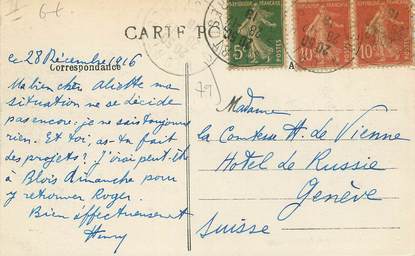 CARTE POSTALE
Correspondance
ce 28 Décembre 1916
Ma bien chère Aliette ma
situation ne se décide
pas encore; je ne sais toujours
rien. Et toi, as-tu fait
des projets? J'irai peut-être
à Blois dimanche pour
y retrouver Roger.
Bien affectueusement
Henry
79
Madame
la Comtesse H. de Vienne
Hotel de Russie
Genève
Suisse
5c
POSTES
10c
10c